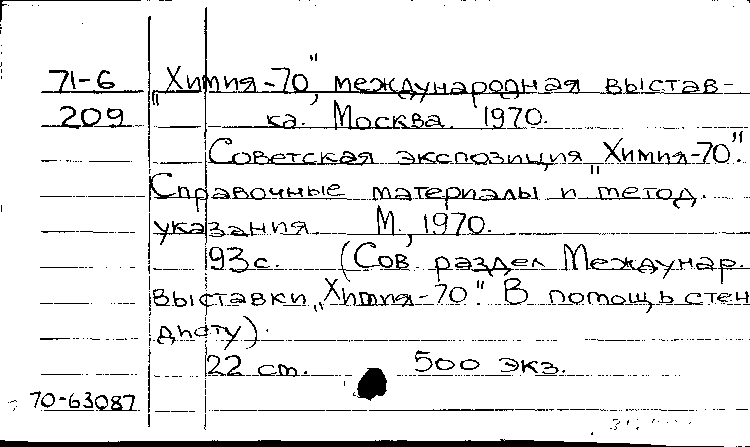 71-6 „Химия-70", международная выстав-
209 ка. Москва. 1970.
Советская экспозиция „Химия-70".
Справочные материалы и метод.
указания. М., 1970.
93 с. (Сов. раздел Междунар.
выставки „Химия-70". В помощь стен
дисту).
22 см. 500 экз.
70-63087